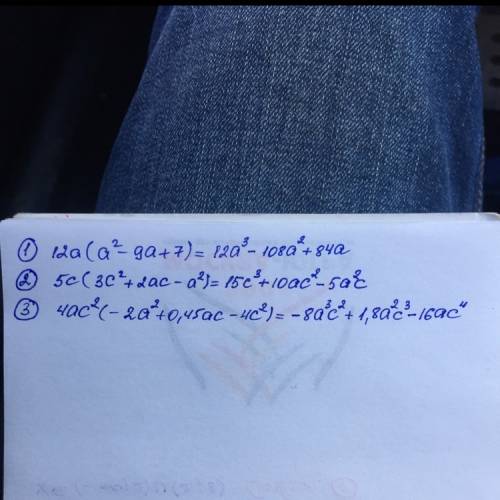 ① 12a(a²-9a+7)=12a³-108a²+84a
② 5c(3c²+2ac-a²)=15c³+10ac²-5a²c
③ 4ac²(-2a²+0,45ac-4c²)=-8a³c²+1,8a²c³-16ac⁴